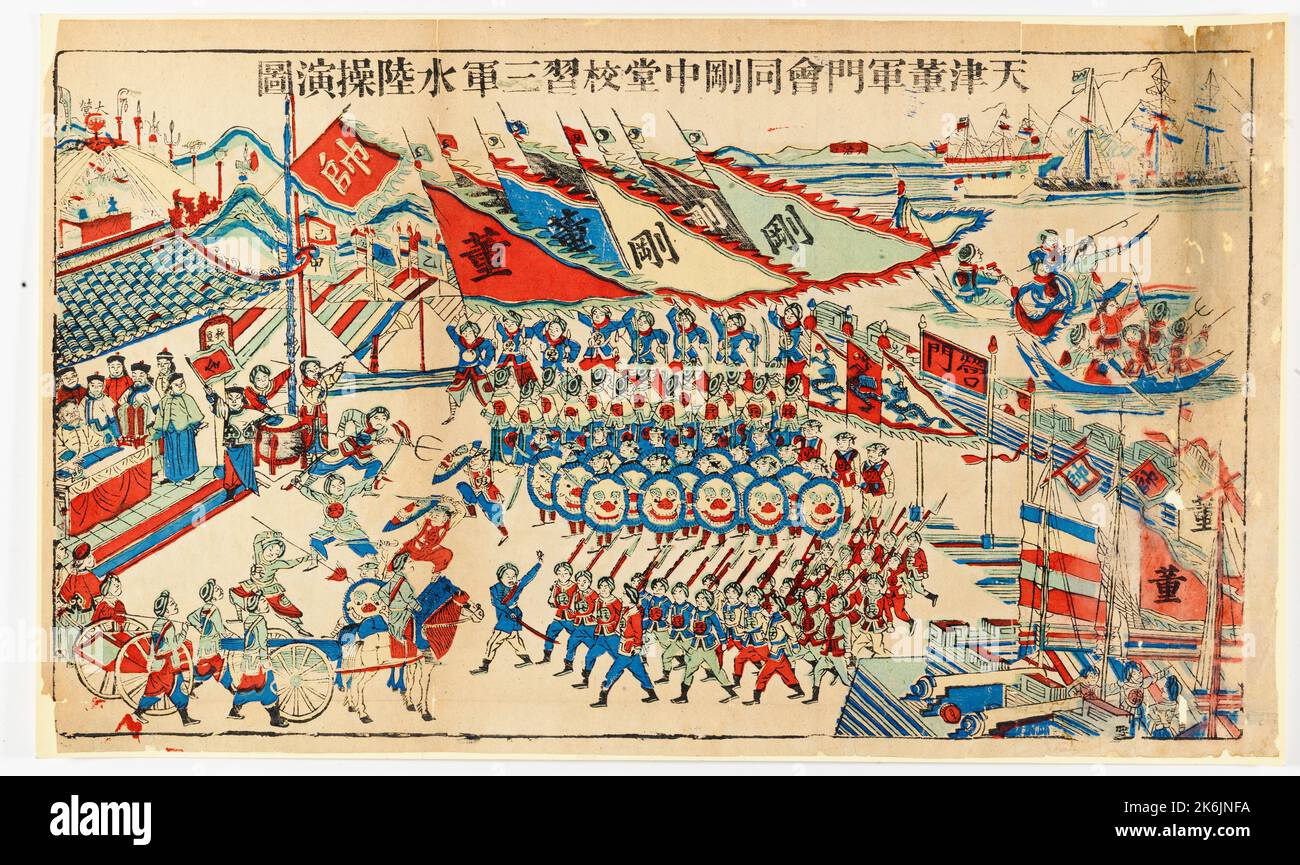 天津董軍門會同剛中堂校習三軍水陸操演圖
帥
董
董
剛
剛
甲
乙
營門
帥
帥
董
董
alamy
Image ID: 2K6JNFA
www.alamy.com